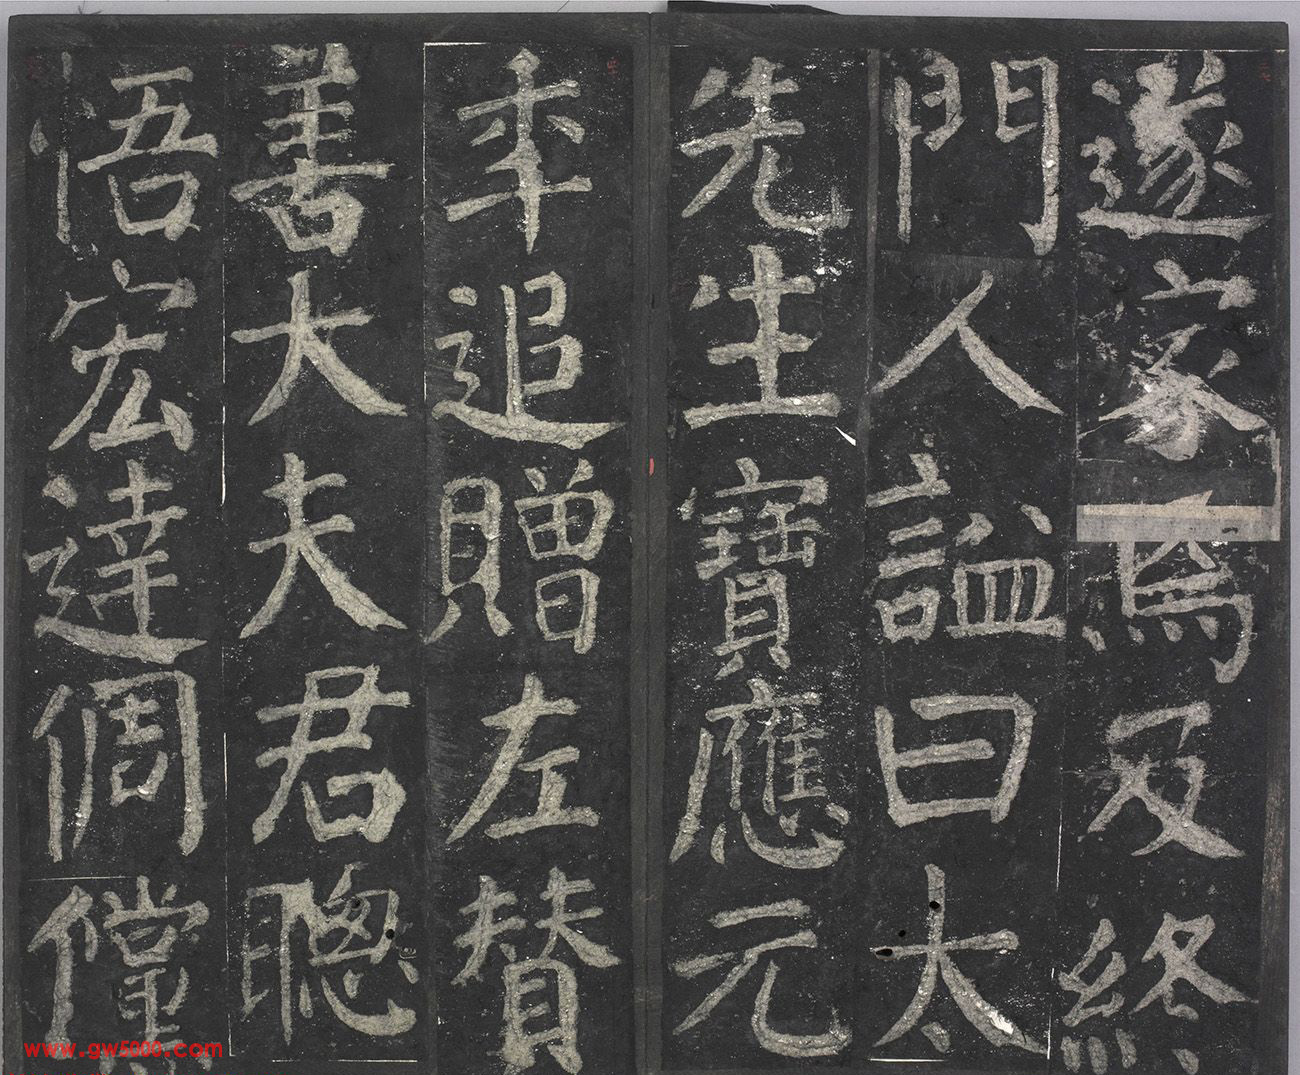 遂家焉及終
門人謚曰太
先生寶應元
年追贈左贊
善大夫君聰
悟宏達倜儻
www.gw5000.com